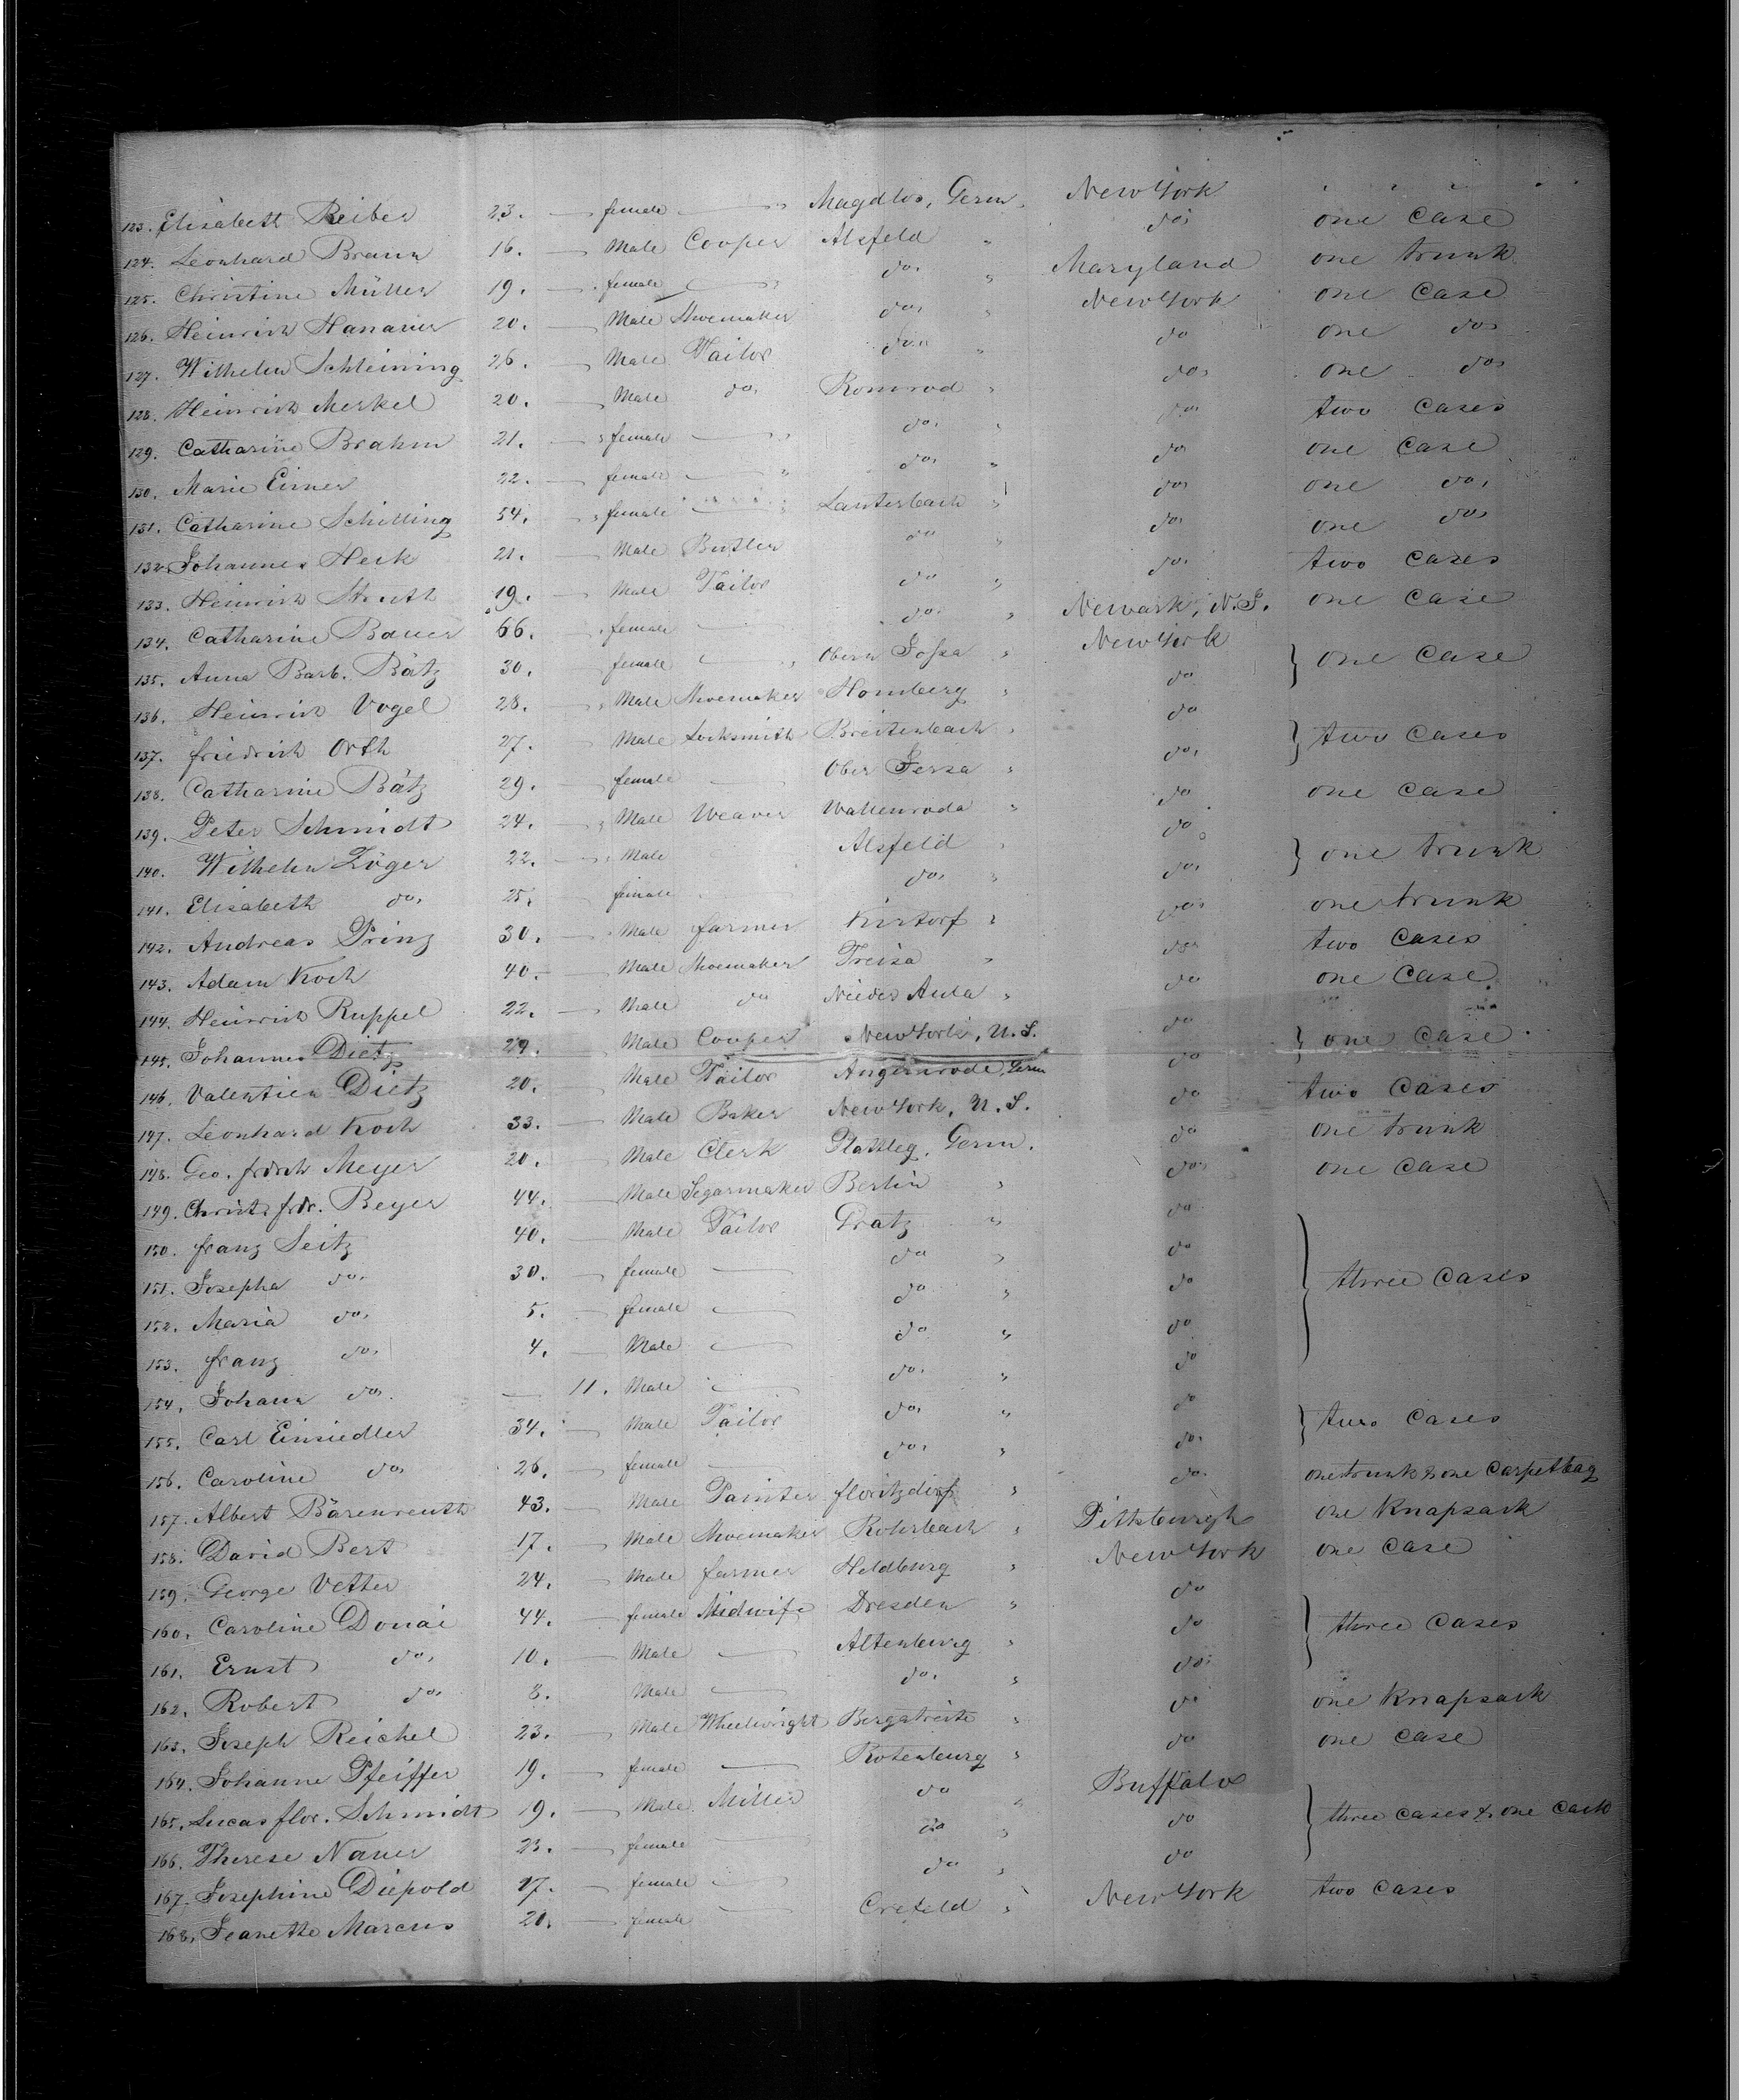 123. Elisabeth Reiber 23. — female — " Magdlos, Germ. New York
124. Leonhard Braun 16. — Male Cooper Alsfeld " do. one Case
125. Christine Müller 19. — female — " do. " Maryland one trunk
126. Heinrich Hanauer 20. — Male Shoemaker do. " New York one Case
127. Wilhelm Schleining 26. — Male Tailor do. " do one do.
128. Heinrich Merkel 20. — Male do. Romrod " do. one do.
129. Catharine Brahm 21. — female — " do. " do. two Cases
130. Marie Eimer 22. — female — " do. " do. one Case
131. Catharine Schilling 54. — female — " Lauterbach " do. one do.
132. Johannes Heck 21. — Male Butler do " do. one do.
133. Heinrich Strath 19. — Male Tailor do " do. two Cases
134. Catharine Bauer 66. — female — do. " Newark, N.J. one Case
135. Anna Barb. Bätz 30. female — " Obern Jossa " New York } one Case
136. Heinrich Vogel 28. — Male Shoemaker Homberg " do
137. friedrich Orth 27. — Male Locksmith Breitenbach " do } two Cases
138. Catharine Bätz 29. — female — Ober Jersa " do.
139. Peter Schmidt 24. — Male Weaver Wallenroda " do one Case
140. Wilhelm Zöger 22. — Male Alsfeld " do } one trunk
141. Elisabeth do. 25. female — do. " do.
142. Andreas Prinz 30. — Male farmer Kirtorf " do. one trunk
143. Adam Koch 40. — Male Shoemaker Treisa " do. two Cases
144. Heinrich Ruppel 22. — Male do Nieder Aula " do one Case
145. Johannes Dietz 29. Male Cooper New York, U.S. do } one Case
146. Valentien Dietz 20. — Male Tailor Angenrode, Germ do
147. Leonhard Koch 33. — Male Baker New York, U.S. do two Cases
148. Geo. frdrch Meyer 20. — Male Clerk Germ. do one trunk
149. Christ. frdr. Beyer 44. — Male Segarmaker Berlin " do. one Case
150. franz Seitz 40. — Male Tailor Gratz " do
151. Josepha do. 30. — female — do " do } three Cases
152. Maria do. 5. — female — do " do
153. franz do. 4. — Male — do " do
154. Johann do. — 11. Male — do. " do
155. Carl Einsiedler 34. — Male Tailor do. " do } two Cases
156. Caroline do. 26. — female — do. " do.
157. Albert Bärenreuth 43. — Male Painter floritzdorf " do. one trunk & one Carpetbag
158. David Bert 17. — Male Shoemaker Rohrbach " Pittsburgh one Knapsack
159. George Vetter 24. — Male farmer Heldburg " New York one Case
160. Caroline Douai 44. — female Midwife Dresden " do
161. Ernst do. 10. — Male — Altenburg " do } three Cases
162. Robert do. 8. — Male — do. " do.
163. Joseph Reichel 23. — Male Wheelwright Bergstreite " do one Knapsack
164. Johanne Pfeiffer 19. — female — Rotenburg " do one Case
165. Lucas flor. Schmidt 19. — Male Miller do " Buffalo
166. Therese Nauer 23. — female — do " do } three cases & one Cask
167. Josephine Diepold 17. — female — do " do
168. Jeanette Marcus 20. — female — Crefeld " New York two Cases